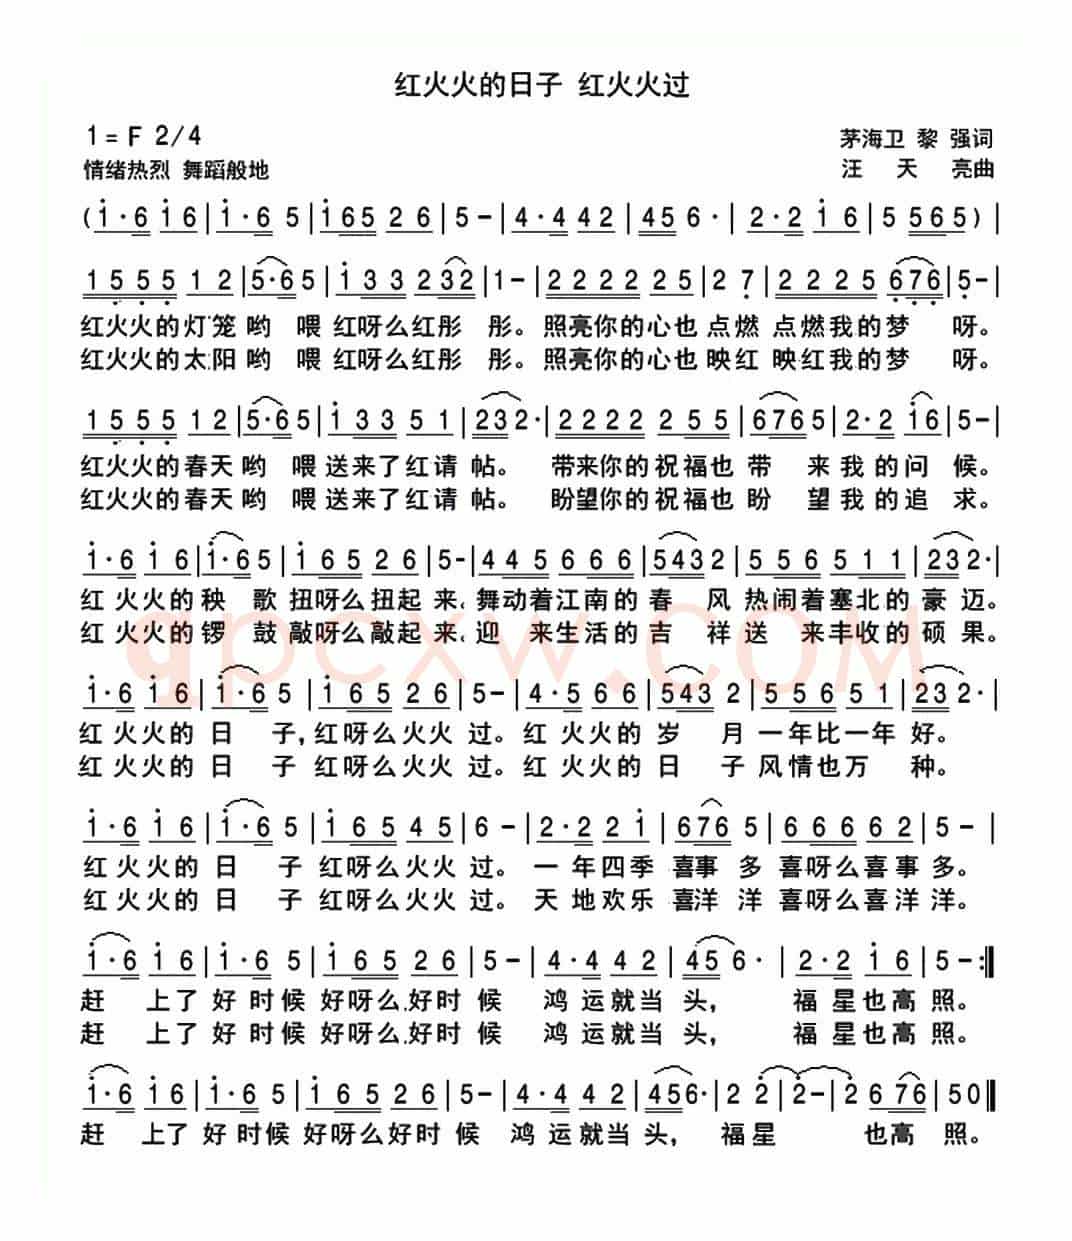 红火火的日子 红火火过
1=F 2/4
茅海卫 黎 强词
情绪热烈 舞蹈般地
汪 天 亮曲
(i·6 i6|i·6 5|i65 26|5-|4·4 42|456·|2·2 i6|5 565)|
1555 12|5·65|i33 232|1-|2222 25|2 7|2225 676|5-|
红火火的灯笼哟 喂红呀么红彤 彤。照亮你的心也点燃 点燃我的梦 呀。
红火火的太阳哟 喂红呀么红彤 彤。照亮你的心也映红 映红我的梦 呀。
1555 12|5·65|i33 51|232·|2222 255|6765|2·2 i6|5-|
红火火的春天哟 喂送来了红请 帖。 带来你的祝福也 带 来我的问 候。
红火火的春天哟 喂送来了红请 帖。 盼望你的祝福也 盼 望我的追 求。
i·6 i6|i·65|i65 26|5-|445 666|5432|556 511|232·|
红 火火的秧 歌扭呀么扭起 来、舞动着江南的春 风热闹着塞北的豪迈。
红 火火的锣 鼓敲呀么敲起 来、迎 来生活的吉 祥送 来丰收的硕 果。
i·6 i6|i·6 5|i65 26|5-|4·5 66|543 2|556 51|232·|
红 火火的 日 子,红呀么火火 过。红 火火的 岁 月一年比一年 好。
红 火火的 日 子 红呀么火火 过。红 火火的 日 子风情也万 种。
i·6 i6|i·6 5|i65 45|6-|2·2 2i|676 5|666 62|5-|
红 火火的 日 子 红呀么火火 过。一 年四季 喜事 多 喜呀么喜事 多。
红 火火的 日 子 红呀么火火 过。天 地欢乐 喜洋 洋 喜呀么喜洋 洋。
i·6 i6|i·6 5|i65 26|5-|4·4 42|456·|2·2 i6|5-:||
赶 上了 好时候 好呀么.好时 候 鸿 运就当 头， 福 星也高 照。
赶 上了 好时候 好呀么.好时 候 鸿 运就当 头， 福 星也高 照。
i·6 i6|i·6 5|i65 26|5-|4·4 42|456·|2 2|2-|2 676|50||
赶 上了 好时候 好呀么好时 候 鸿 运就当 头， 福星 也高 照。
qpcxw.COM